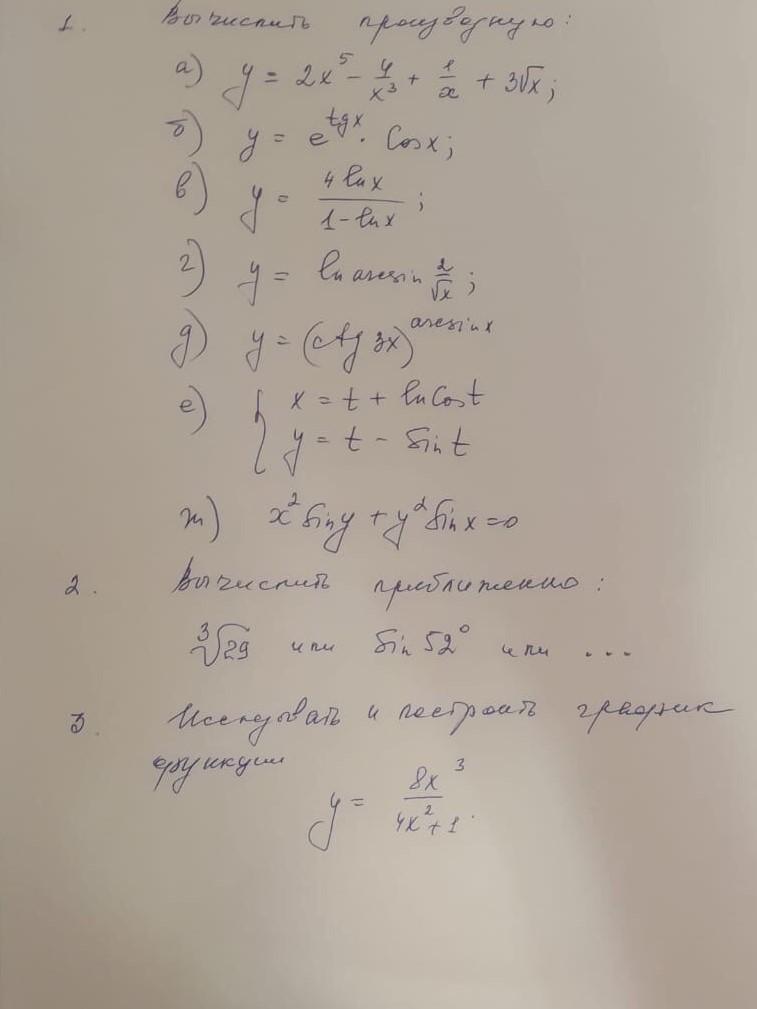 1. Вычислить производную:
а) y = 2x⁵ - 4/x³ + 1/x + 3√x;
б) y = e^(tgx) · Cosx;
в) y = (4 lnx)/(1-lnx);
г) y = ln arcsin 2/√x;
д) y = (ctg 3x)^(arcsinx)
е) { x = t + lnCost
y = t - Sint
ж) x² Siny + y² Sinx = 0
2. Вычислить приближенно:
∛29 или Sin 52° или ...
3. Исследовать и построить график
функции
y = 8x³/(4x²+1).